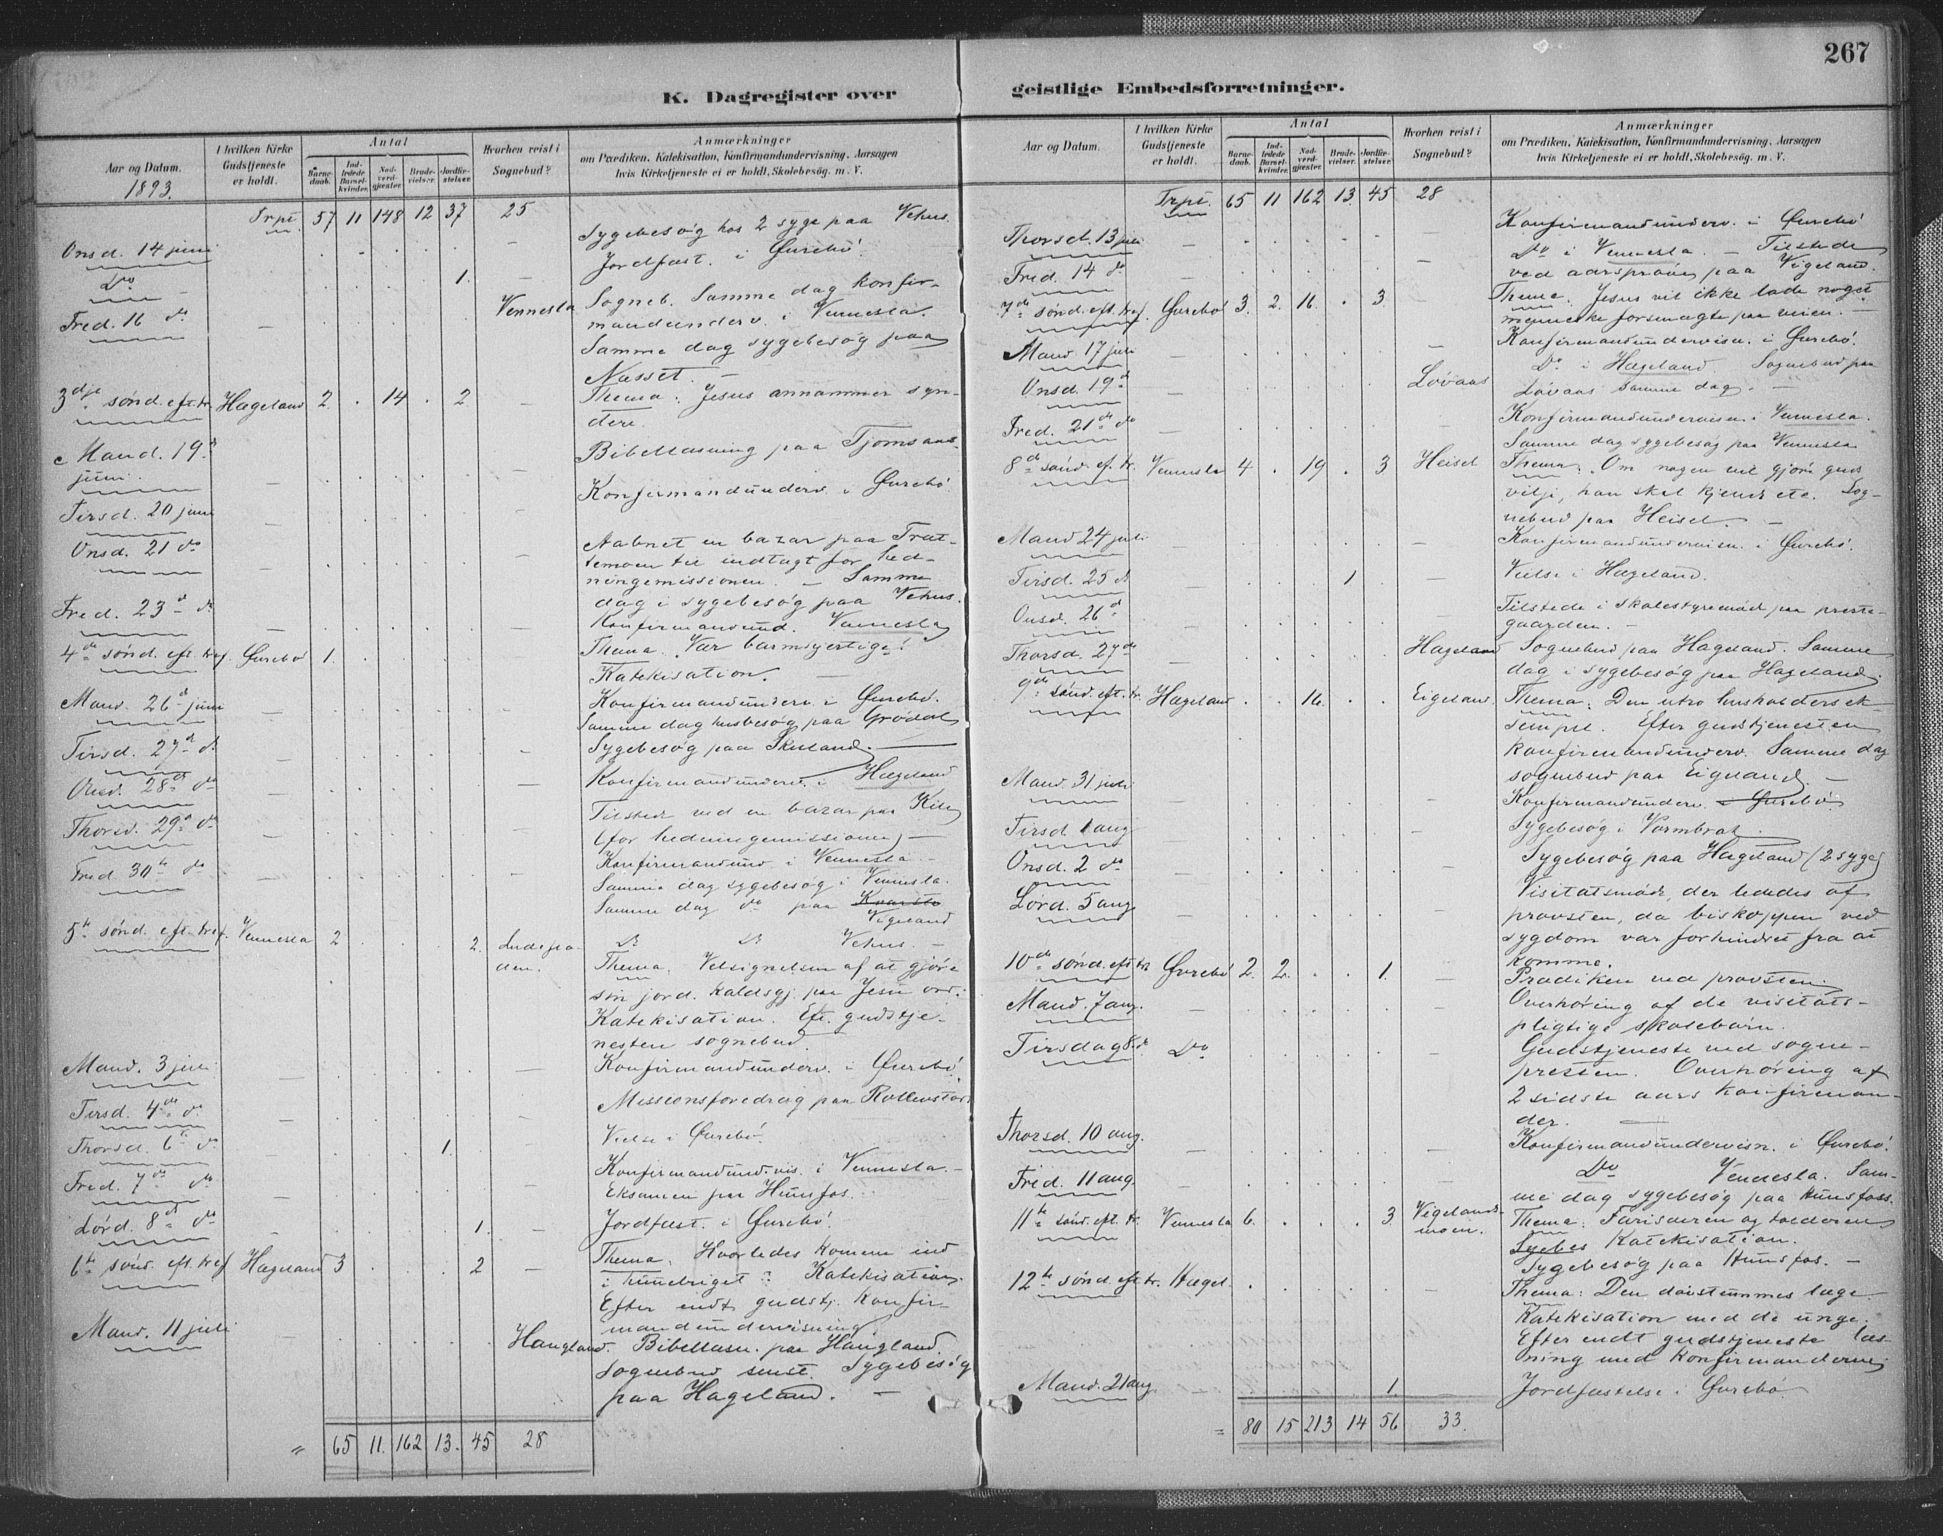 267
K. Dagregister over geistlige Embedsforretninger.
Aar og Datum.
1893.
I hvilken Kirke Gudstjeneste er holdt.
Antal
Barnedaab.
Indledede Barselkvinder.
Nadverdgjester
Brudevielser.
Jordfæstelser
Hvorhen reist i Sognebud?
Anmærkninger
om Prædiken, Katekisation, Konfirmandundervisning, Aarsagen
hvis Kirketjeneste ei er holdt, Skolebesøg. m. V.
Trpt 57 11 148 12 37 25
Onsd. 14 juni — Sygebesøg hos 2 syge paa Vehus.
Do — 1. — Jordfast. i Øvrebø.
Fred. 16 do — Vennesla Sogneb. Samme dag konfir-
mandunderv. i Vennesla.
Samme dag sygebesøg paa
Næsset. —
3dje sønd. eft. tr. Hægeland 2. 14 2 — Thema: Jesus annammer syn-
dere.
Mand. 19. juni. — Bibellæsning paa Tjomsaas.
Tirsd. 20 juni — Konfirmandunderv. i Øvrebø
Onsd. 21 do — Aabnet en bazar paa
til indtægt for hed-
ningemissionen. — Samme
dag i sygebesøg paa Vehus.
Fred. 23 do — Konfirmandund. Vennesla
4de sønd. eft. tref. Øvrebø 1. Thema. Vær barmhjertige!
Katekisation. —
Mand. 26 juni — Konfirmandunderv. i Øvrebø.
Samme dag husbesøg paa Grødal
Tirsd. 27 d — Sygebesøg paa Skeland. —
Onsd. 28 do — Konfirmandunderv. i Hægeland
Thorsd. 29 do — Tilstede ved en bazar paa Kile
(for hedningemissionen) —
Fred 30te do — Konfirmandund i Vennesla. —
Samme dag sygebesøg i Vennesla.
Samme dag do paa Kvarsten
Vigeland
Do Do Vehus. —
5te sønd. eft. tref. Vennesla 2 2. den. Thema. Velsignelsen af at gjøre
sin jord. kaldsgj. paa Jesu ord.
Katekisation. Eft. gudstje-
nesten sognebud.
Mand. 3 juli — Konfirmandunderv. i Øvrebø.
Tirsd. 4de do — Missionsforedrag paa
Thorsd. 6te do 1. Vielse i Øvrebø.
Fred. 7de do — Konfirmandundvis. i Vennesla. —
Eksamen paa Hunsfos.
Lørd. 8de do — 1. — Jordfast. i Øvrebø.
6te sønd. eft. tref Hægeland 3 2 — Thema. Hvorledes komme ind
i himmeriget? Katekisation.
Efter endt gudstj. konfir-
mandundervisning.
Mand. 11 juli — Haugland. Bibellæsn. paa Haugland.
Sognebud smst. Sygebesøg
paa Hægeland. —
" 65 11. 162 13. 45 28
Aar og Datum.
I hvilken Kirke Gudstjeneste er holdt.
Antal
Barnedaab.
Indledede Barselkvinder.
Nadverdgjester
Brudevielser.
Jordfæstelser
Hvorhen reist i Sognebud?
Anmærkninger
om Prædiken, Katekisation, Konfirmandundervisning, Aarsagen
hvis Kirketjeneste ei er holdt, Skolebesøg. m. V.
Trpt 65 11 162 13. 45 28
Thorsd. 13 juli — Konfirmandunderv. i Øvrebø
Fred. 14 do — Do i Vennesla — Tilstede
ved aarsprøven paa Vigeland.
7de sønd. eft. tref. Øvrebø 3. 2. 16. 3 Thema. Jesus vil ikke lade noget
menneske forsmægte paa veien. —
Mand. 17 juli — Konfirmandundervisn. i Øvrebø.
Onsd. 19 d — Løvaas Do i Hægeland. Sognebud paa
Løvaas samme dag. —
Fred. 21de do — Konfirmandundervisn. i Vennesla.
Samme dag sygebesøg paa Vennesla
8de sønd. ef. tr. Vennesla 4 19 3 Heisel Thema: Om nogen vil gjøre guds
vilje, han skal kjende etc. Sog-
nebud paa Heisel. —
Mand 24 juli — Konfirmandundervisn. i Øvrebø.
Tirsd. 25 d — 1 — Vielse i Hægeland.
Onsd. 26 d — Tilstede i skolestyremøde paa preste-
gaarden. —
Thorsd. 27de — Hægeland Sognebud paa Hægeland. Samme
dag i sygebesøg paa Hægeland.
9de sønd. eft. tr. Hægeland 16. Eigeland Thema: Den utro husholders ek-
sempel. Efter gudstjenesten
konfirmandunderv. Samme dag
sognebud paa Eigeland. —
Mand. 31 juli — Konfirmandunderv. i Øvrebø
Tirsd 1 aug — Sygebesøg i
Onsd. 2 do — Sygebesøg paa Hægeland (2 syge)
Lørd. 5 aug — Visitatsmøde, der lededes af
provsten, da biskoppen ved
sygdom var forhindret fra at
komme.
10de sønd. eft. tr Øvrebø 2. 2. 1. — Prædiken ved provsten.
Mand. 7 aug. — Overhøring af de visitats-
pligtige skolebørn.
Tirsdag 8. Do — Gudstjeneste ved sogne-
presten. Overhøring af
2 sidste aars konfirman-
der. —
Thorsd. 10 aug. — Konfirmandundervisn. i Øvrebø.
Fred. 11 aug. — Do Vennesla. Sam-
me dag sygebesøg paa Hunsfoss.
11te sønd. eft. tr. Vennesla 6. 3. Vigelands-
moen. Thema: Farisæeren og tolderen
Sygebes Katekisation.
Sygebesøg paa Hunsfos. —
12te sønd. eft. tr. Hægel. Thema: Den døvstummes læge.
Katekisation med de unge.
Efter endt gudstjeneste læs-
ning med konfirmanderne
Mand. 21 aug. — 1. Jordfæstelse i Øvrebø
" 80 15 213 14 56 33.